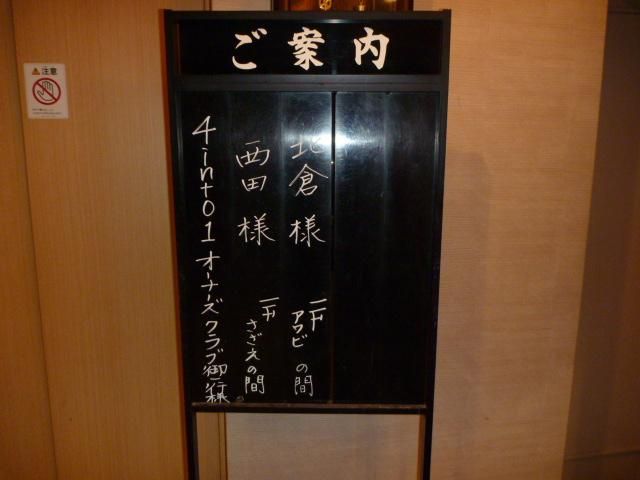 ご案内
北倉様 二F アワビの間
西田様 二F さざえの間
4into1オーナーズクラブ御一行様
注意